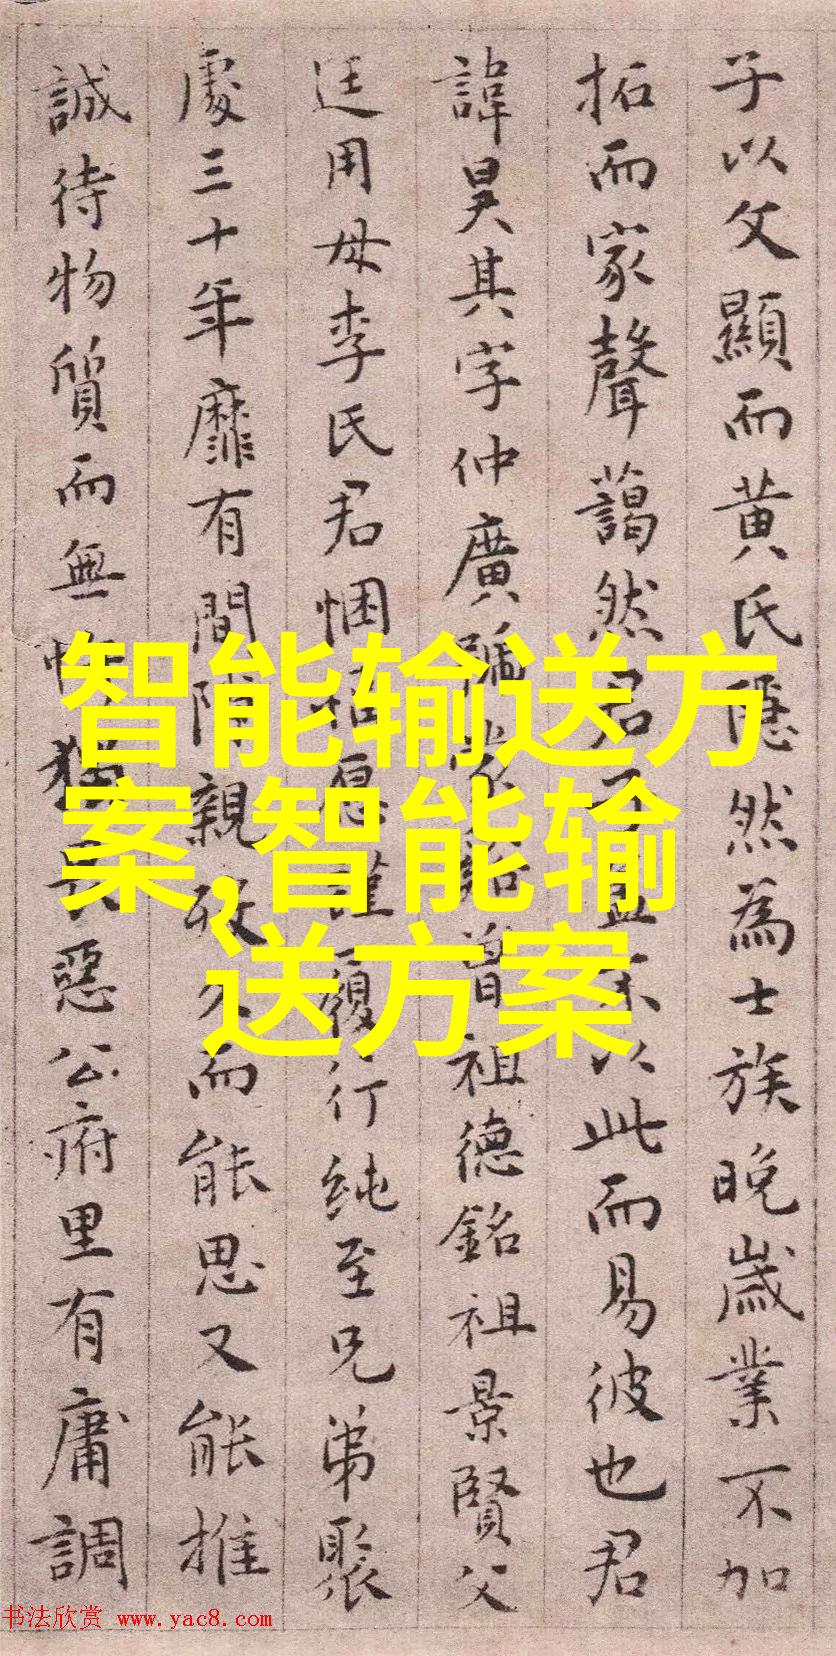 子以父顯而黄氏隱然為士族晚歲業不加
拓而家聲藹然君子盖不以此而易彼也君
諱昊其字仲廣曾祖德銘祖景賢父
廷用母李氏君悃愊愿謹履行純至兄弟聚
處三十年靡有間隙親歿久而能思又能推
誠待物質而無長惡公府里有庸調
智能输送方
案,智能输
送方案
书法欣赏 www.yac8.com